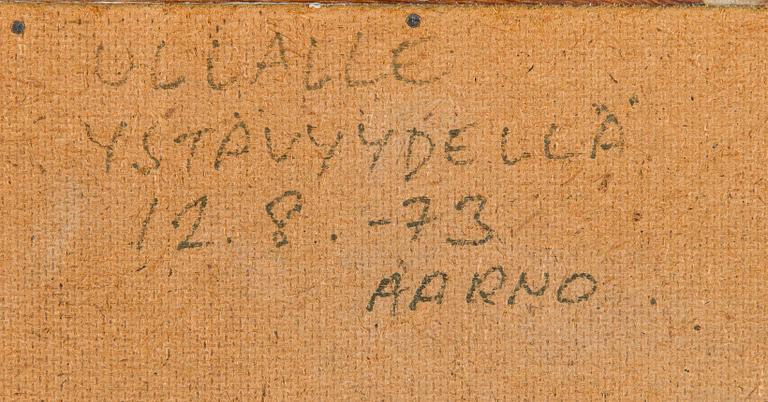 ULLALLE
YSTÄVYYDELLÄ
12.8.-73
AARNO.